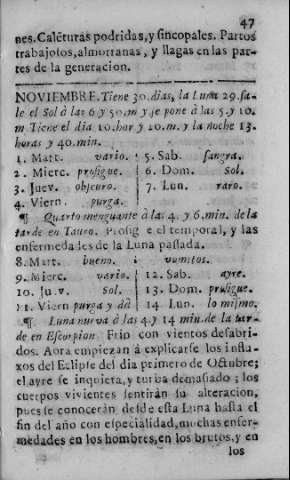 47
nes. Calẽturas podridas, y sincopales. Partos
trabajosos, almorranas, y llagas en las par-
tes de la generacion.
NOVIEMBRE. Tiene 30. dias, la Luna 29. sa-
le el Sol à las 6 y 50. m y se pone à las 5. y 10.
m Tiene el dia 10. hor y 20. m. y la noche 13.
horas y 40. min.
1. Mart. vario.
2. Mierc. prosigue.
3. Juev. obscuro.
4. Viern. purga.
5. Sab. sangra.
6. Dom. Sol.
7. Lun. raro.
¶ Quarto menguante à las 4. y 6. min. de la
tarde en Tauro. Prosigue el temporal, y las
enfermedades de la Luna passada.
8. Mart. bueno. i vomitos.
9. Mierc. vario.
10. Juv. Sol.
11. Viern purga y dà
12. Sab. ayre.
13. Dom. prosigue.
14 Lun. lo mismo.
¶. Luna nueva à las 4. y 14 min. de la tar-
de en Escorpion. Frio con vientos desabri-
dos. Aora empiezan à explicarse los influ-
xos del Eclipse del dia primero de Octubre;
el ayre se inquieta, y turba demasiado; los
cuerpos vivientes sentiràn su alteracion,
pues se conoceràn desde esta Luna hasta el
fin del año con especialidad, muchas enfer-
medades en los hombres, en los brutos, y en
los